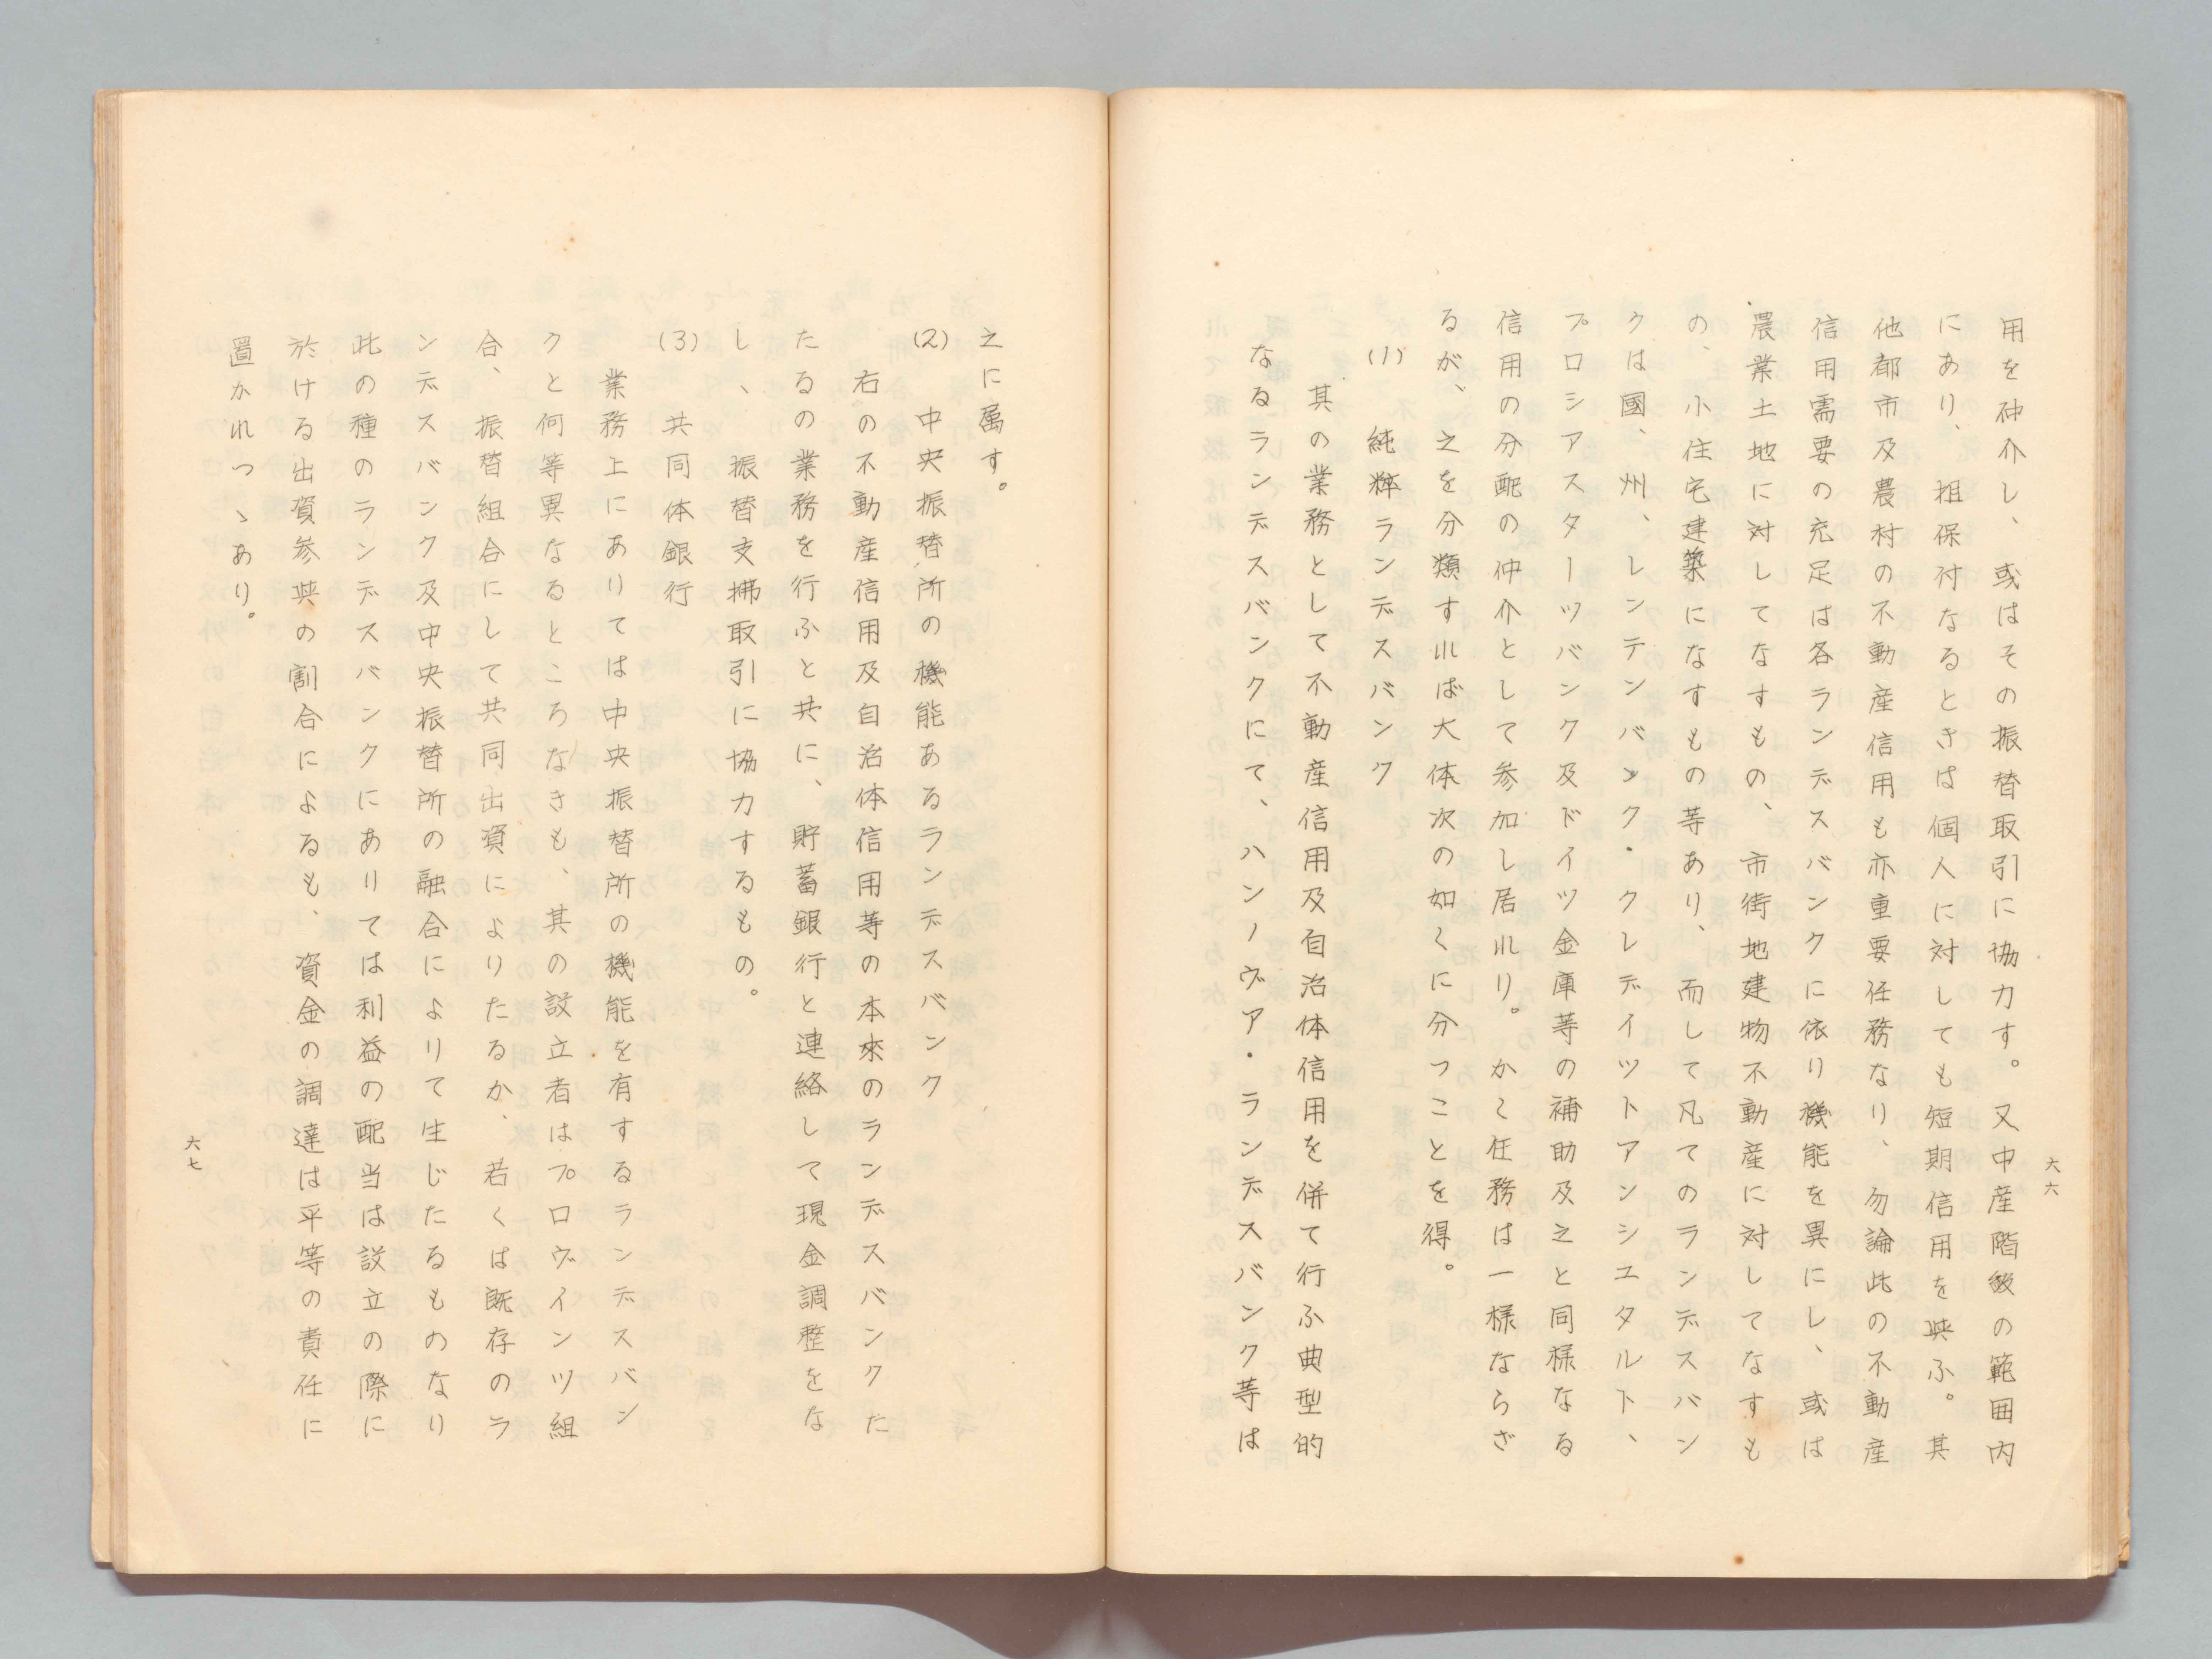 六六
用を仲介し、或はその振替取引に協力す。又中産階級の範囲内
にあり、担保付なるときは個人に対しても短期信用を與ふ。其
他都市及農村の不動産信用も亦重要任務なり、勿論此の不動産
信用需要の充足は各ランデスバンクに依り機能を異にし、或は
農業土地に対してなすもの、市街地建物不動産に対してなすも
の、小住宅建築になすもの等あり、而して凡てのランデスバン
クは國、州、レンテンバンク・クレデイツトアンシユタルト、
プロシアスターツバンク及ドイツ金庫等の補助及之と同様なる
信用の分配の仲介として参加し居れり。かく任務は一様ならざ
るが、之を分類すれば大体次の如くに分つことを得。
(1) 純粹ランデスバンク
其の業務として不動産信用及自治体信用を併て行ふ典型的
なるランデスバンクにて、ハンノヴア・ランデスバンク等は
之に属す。
(2) 中央振替所の機能あるランデスバンク
右の不動産信用及自治体信用等の本來のランデスバンクた
たるの業務を行ふと共に、貯蓄銀行と連絡して現金調整をな
し、振替支拂取引に協力するもの。
(3) 共同体銀行
業務上にありては中央振替所の機能を有するランデスバン
クと何等異なるところなきも、其の設立者はプロヴインツ組
合、振替組合にして共同出資によりたるか、若くは既存のラ
ンデスバンク及中央振替所の融合によりて生じたるものなり
此の種のランデスバンクにありては利益の配当は設立の際に
於ける出資参與の割合によるも、資金の調達は平等の責任に
置かれつゝあり。
六七